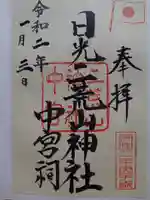 奉拝
日光二荒山神社
中宮祠
令和二年
一月三日